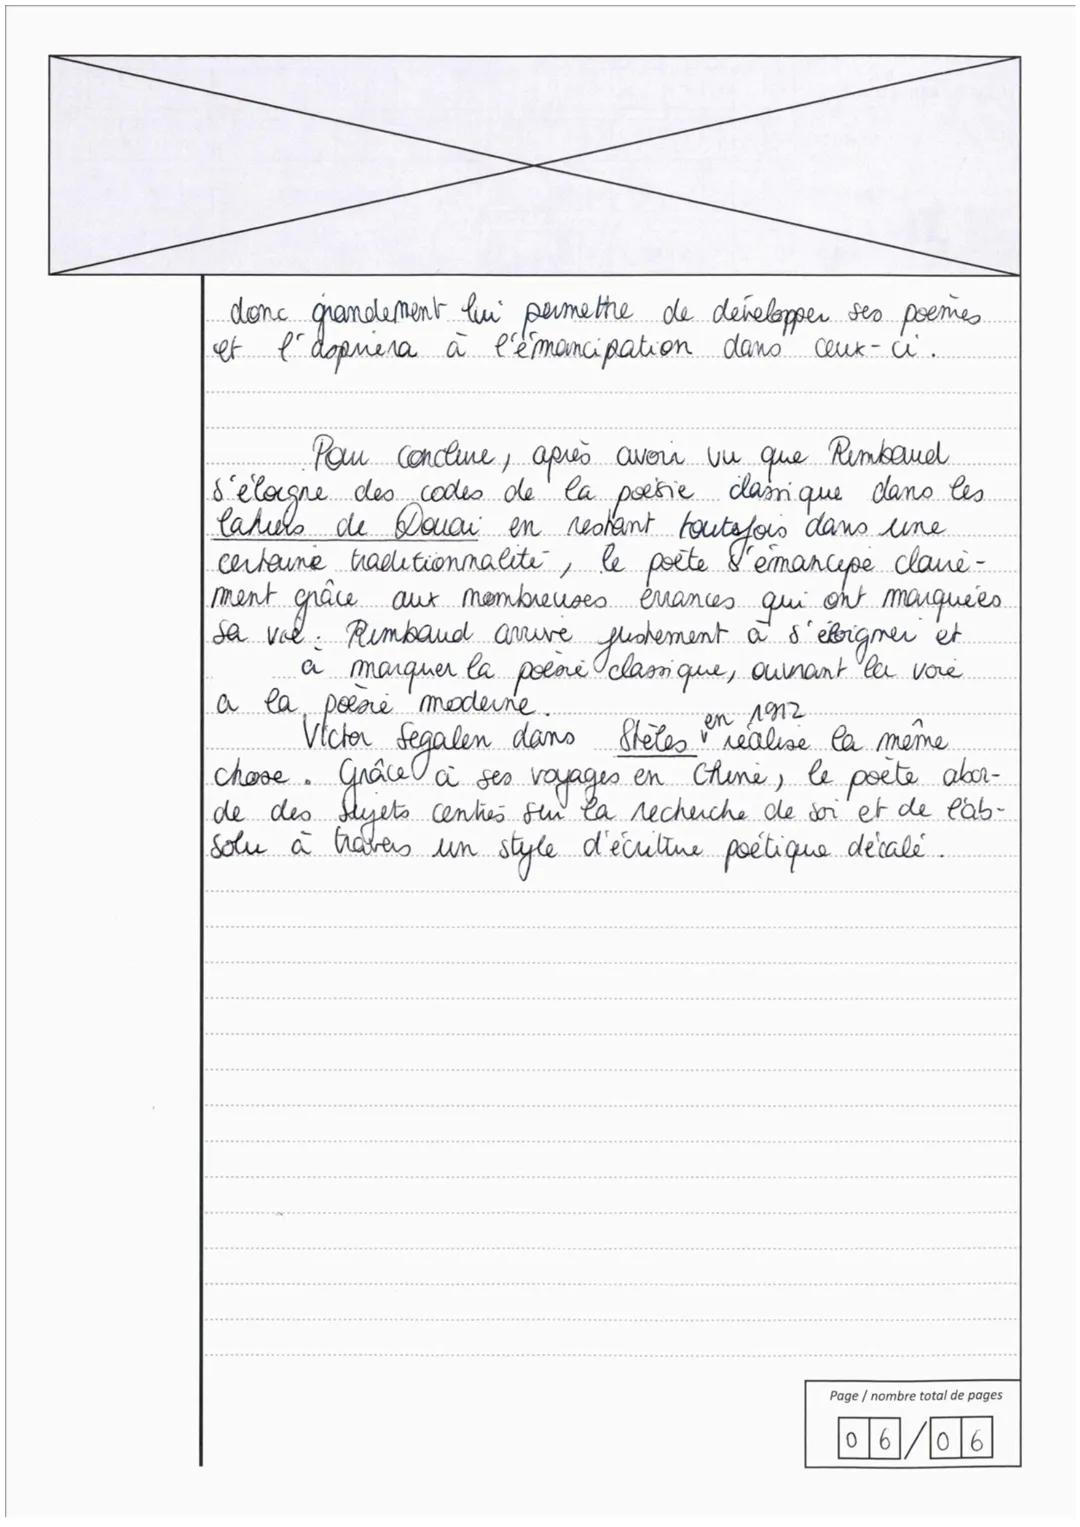 donc grandement lui permettre de développer ses poèmes
et l' à l'émancipation dans ceux-ci.
Pour conclure, après avoir vu que Rimbaud
s'éloigne des codes de la poésie classique dans les
Cahiers de Douai en restant toutefois dans une
certaine traditionnalité, le poète s'émancipe claire-
ment grâce aux nombreuses errances qui ont marquées
sa vie. Rimbaud arrive justement à s'éloigner et
à marquer la poésie classique, ouvrant la voie
a la poésie moderne.
Victor Segalen dans Stèles en 1912 réalise la même
chose. Grâce à ses voyages en Chine, le poète abor-
de des sujets centrés sur la recherche de soi et de l'ab-
solu à travers un style d'écriture poétique décalé.
Page / nombre total de pages
06/06